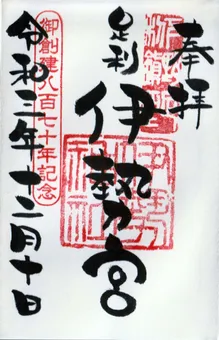 奉拝
足利
伊勢宮
御創建八百七十年記念
令和三年十二月十日